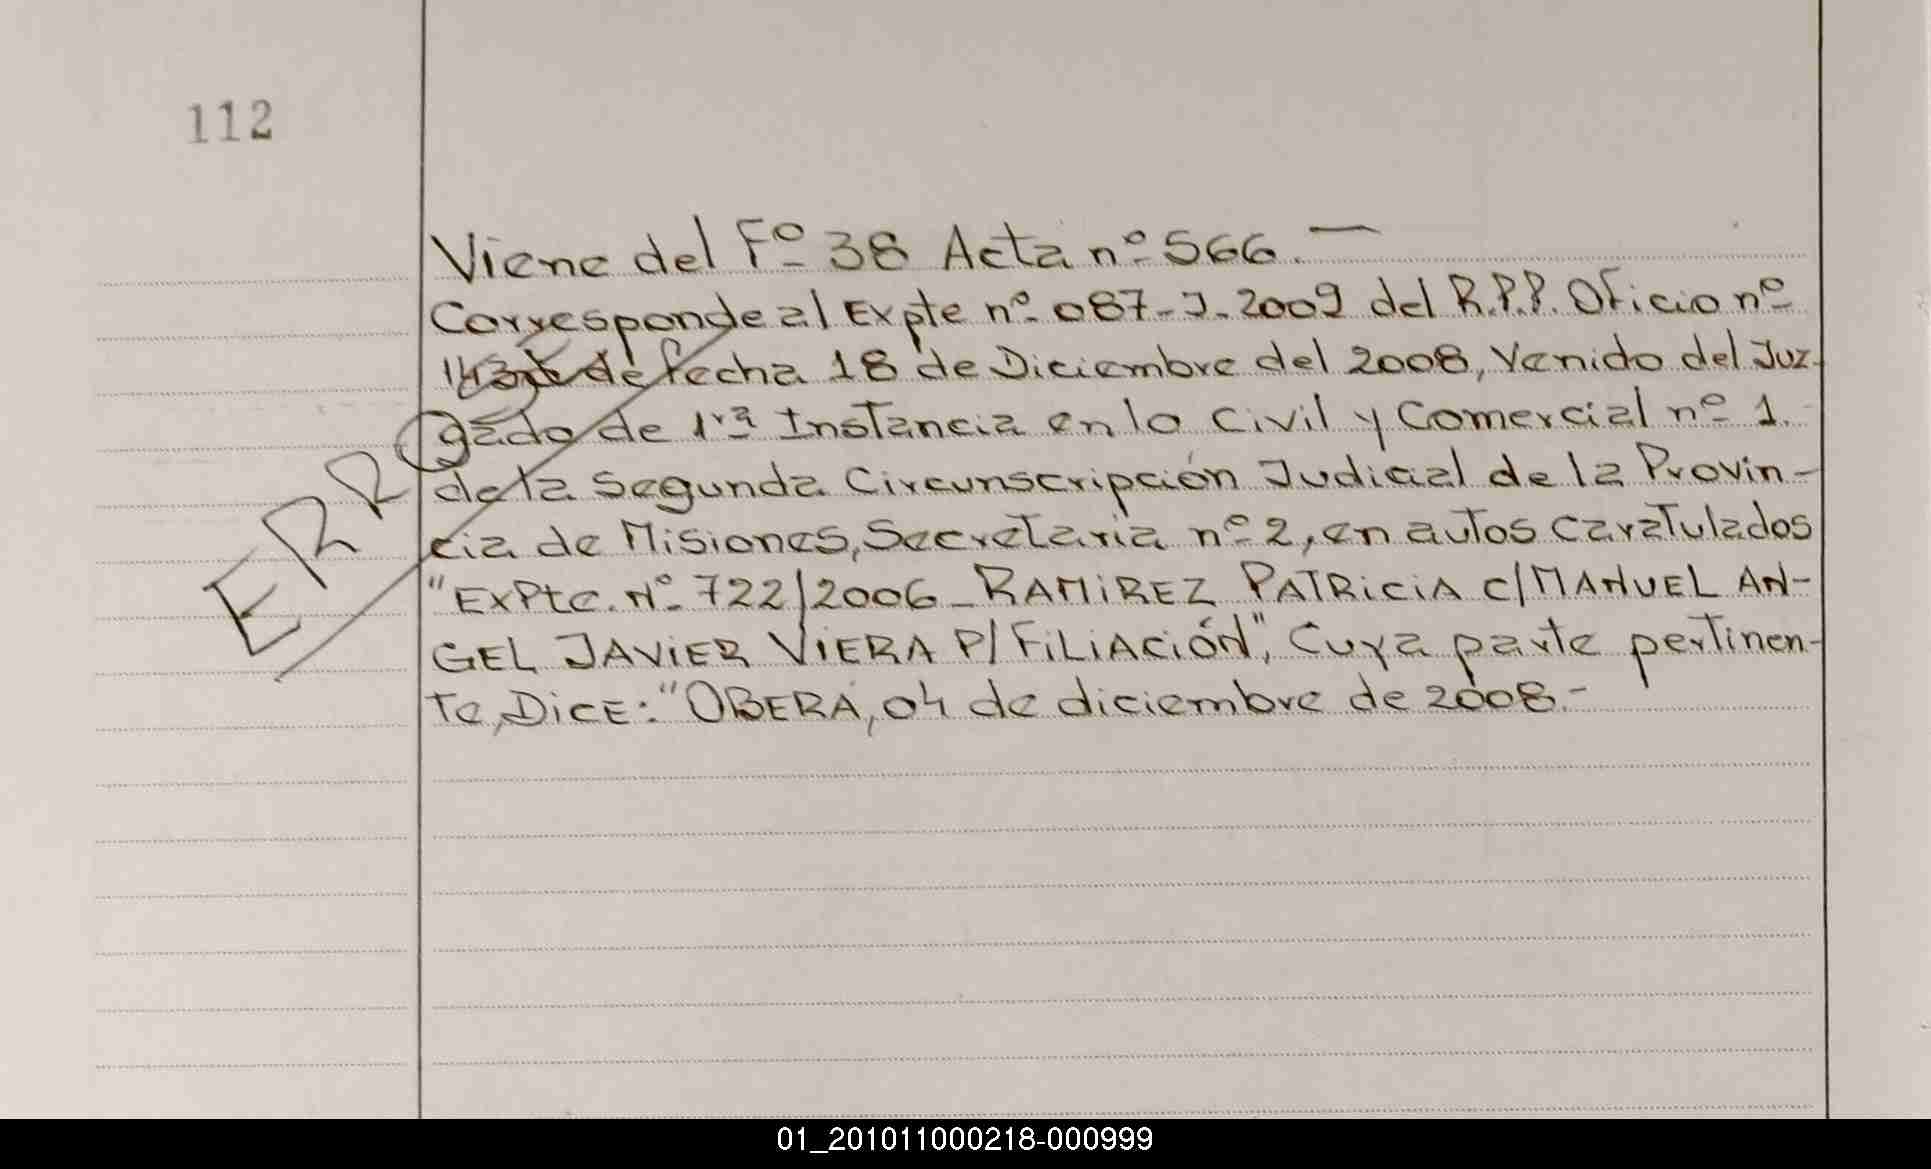 112
Viene del Fº 38 Acta nº 566.—
Corresponde al Expte nº 087-J-2009 del R.P.P. Oficio nº
de fecha 18 de Diciembre del 2008, Venido del Juz-
gado de 1ra Instancia en lo Civil y Comercial nº 1.
de la Segunda Circunscripción Judicial de la Provin-
cia de Misiones, Secretaria nº 2, en autos caratulados
"EXPte. Nº 722/2006_RAMiREZ PATRiCiA C/MANUEL AN-
GEL JAVIER VIERA P/FiLiACiÓN", Cuya parte pertinen-
te, DiCE: "OBERÁ, 04 de diciembre de 2008.-
ERR
01_201011000218-000999